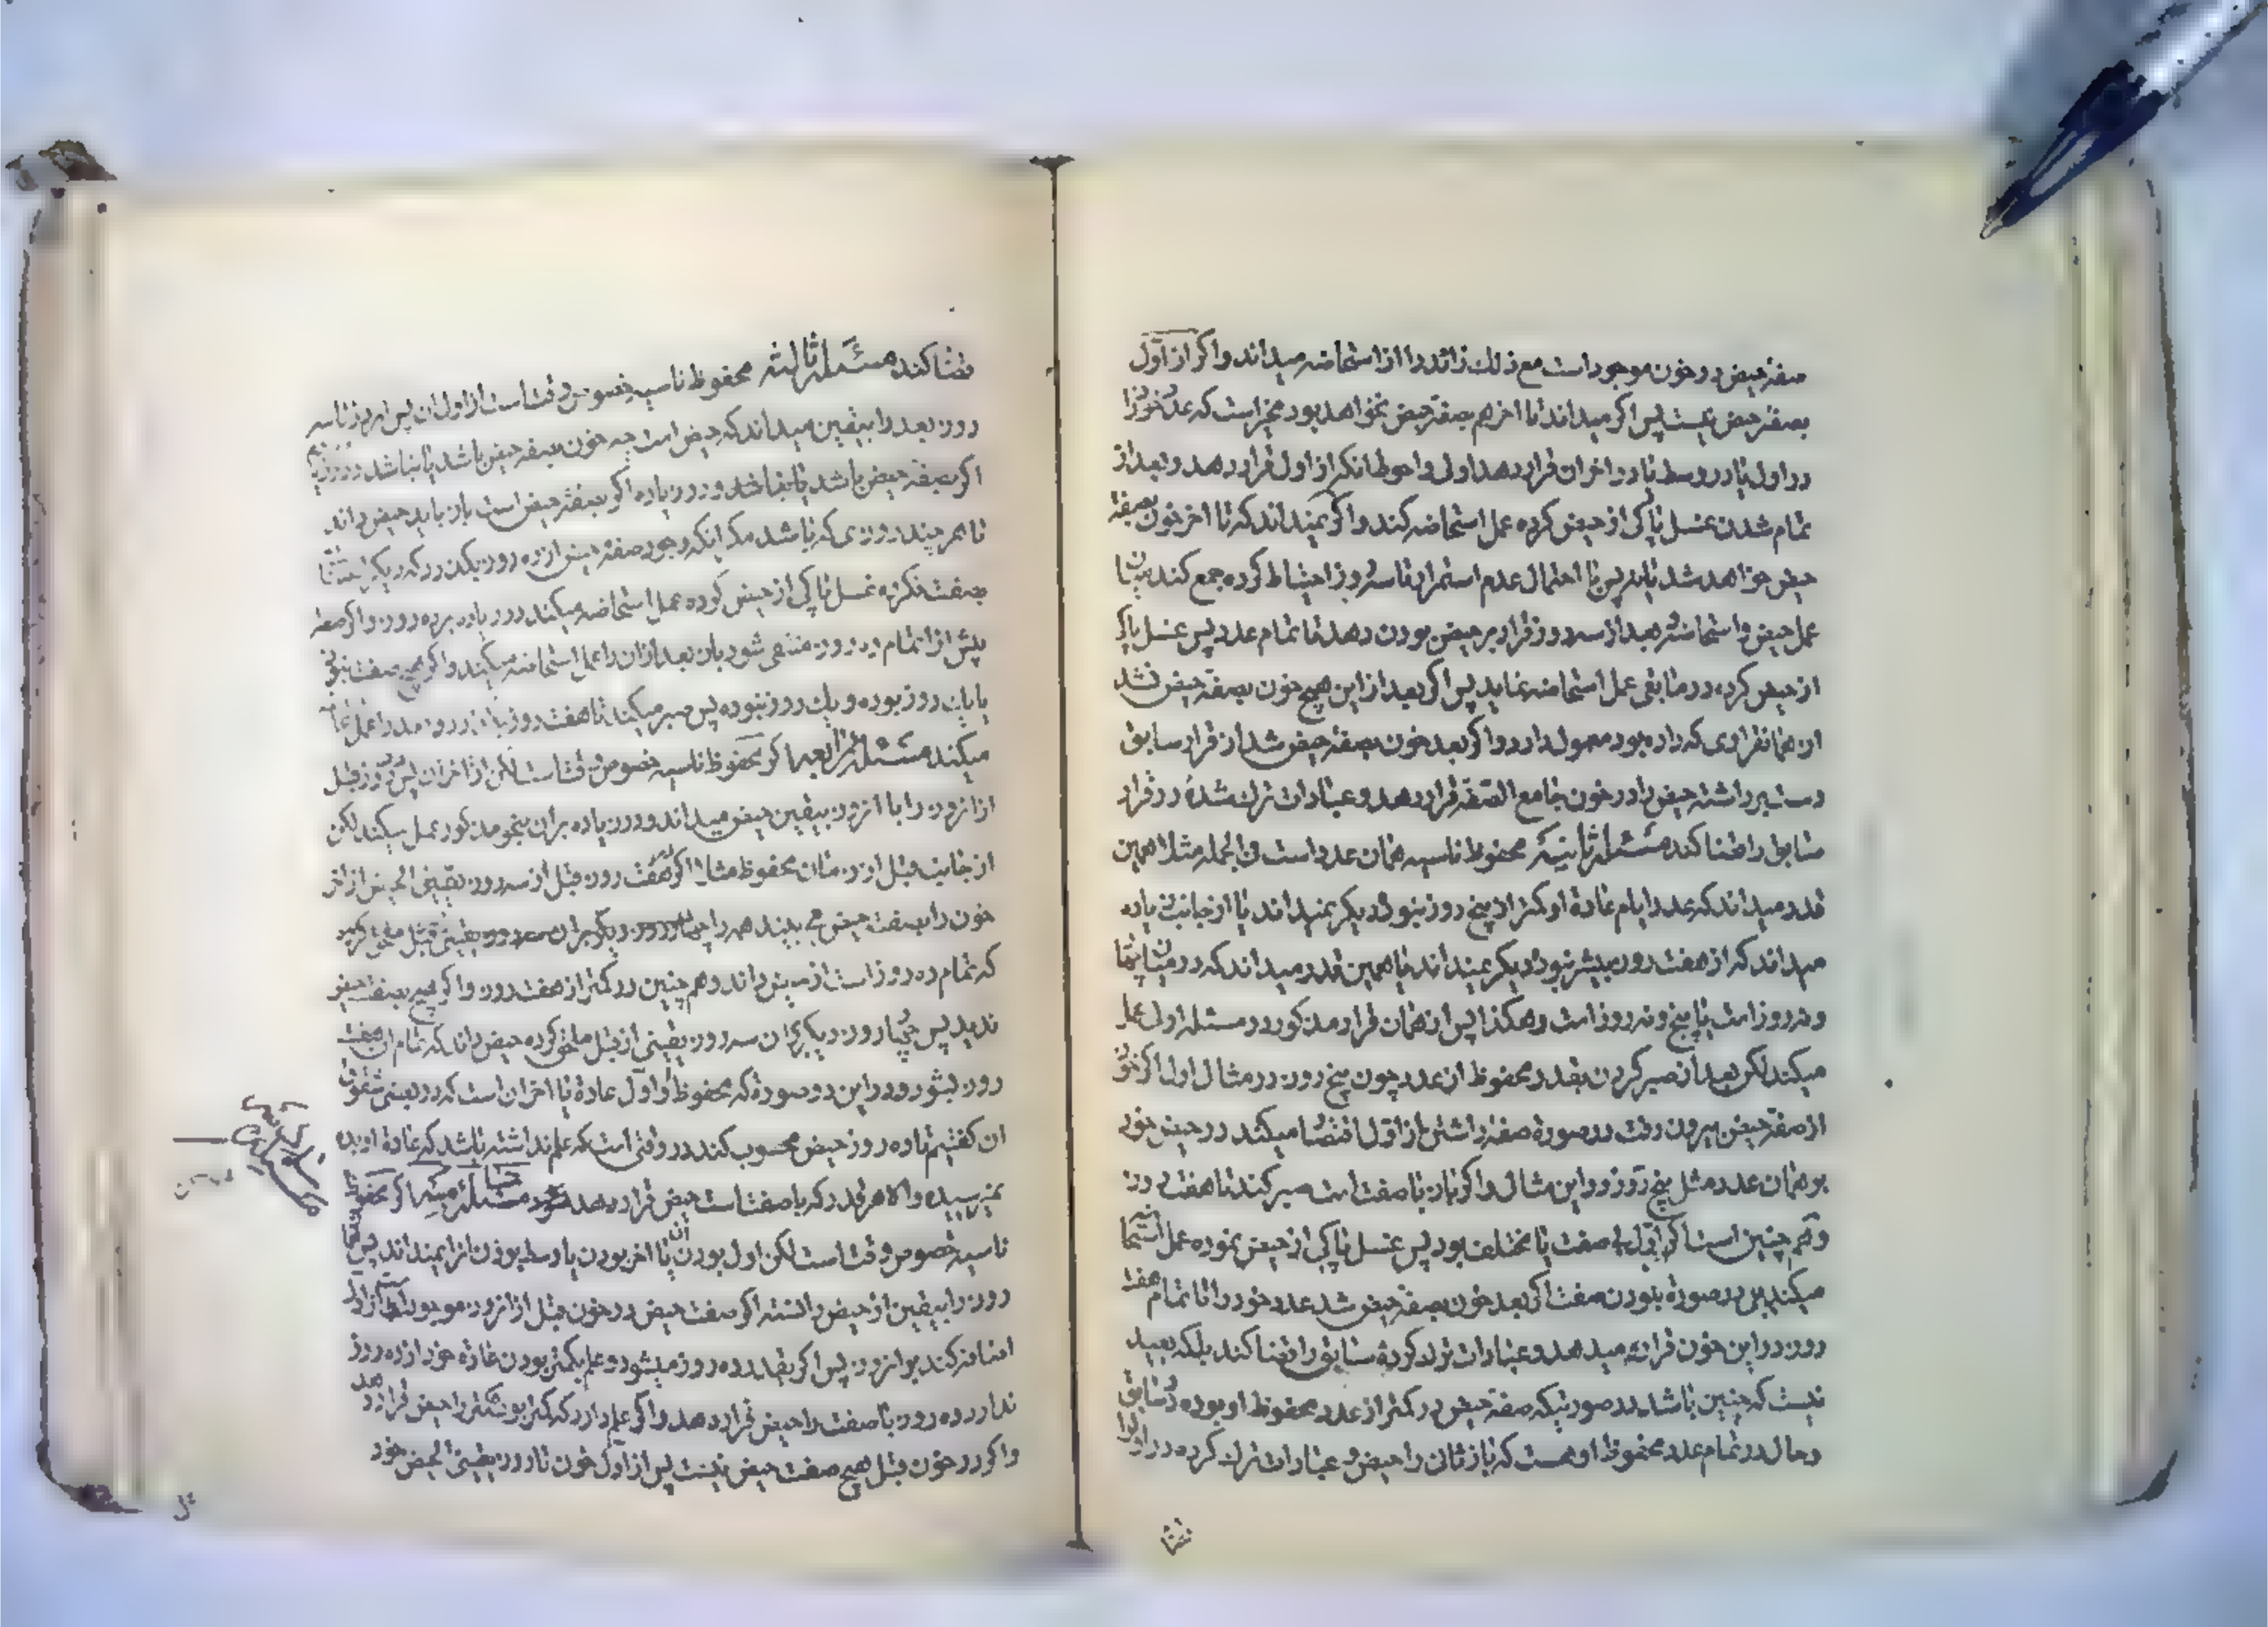 صفة حیض در خون موجود است مع ذلك زائد را از استحاضه میداند و اکر از اول
بصفة حیض نیست پس اکر میداند تا اخر هم بصفة حیض نخواهد بود مخیر است که عدد خود را
در اول یا در وسط یا در اخر ان قرار دهد اولی و احوط انکه از اول قرار دهد و بعد از
تمام شدن غسل پاکی از حیض کرده عمل استحاضه کند و اکر نمیداند که تا اخر خون بصفة
حیض خواهد شد یا نه پس با احتمال عدم استمرار تا سه روز احتیاط کرده جمع کند میان
عمل حیض و استحاضه و بعد از سه روز قرار بر حیض بودن دهد تا تمام عدد پس غسل پاکی
از حیض کرده در مابقی عمل استحاضه نماید پس اکر بعد از این هیچ خون بصفة حیض نشد
از همانقراری که داده بود معمول دارد و اکر بعد خون بصفة حیض شد از قرار سابق
دست برداشته حیض را در خون جامع الصفة قرار دهد و عبادات ترك شده در قرار
سابق را قضا کند مسئلة ثانیة محفوظ ناسیه همان عدد است فی الجمله مثلا همین
قدر میداند که عدد ایام عادة او کمتر از پنج روز نبود دیکر نمیداند یا از جانب زیاده
میداند که از هفت روز بیشتر نبود دیکر نمیداند یا همین قدر میداند که در میان
و نه روز است یا پنج و نه روز است و هکذا پس از همان قرار مذکور در مسئله اولی عمل
میکند لکن بعد از صبر کردن بقدر محفوظ از عدد چون پنج روز در مثال اول اکر خون
از صفة حیض بیرون رفت در صورة صفة داشتن از اول اقتصار میکند در حیض خود
بر همان عدد مثل پنج روز در این مثال و اکر باز با صفت است صبر کند تا هفت روز
و هم چنین است اکر اول بی صفت یا مختلف بود پس غسل پاکی از حیض نموده عمل استحاضه
میکند پس در صورة نبودن صفت اکر بعد خون بصفة حیض شد عدد خود را تا تمام هفت
روز در این خون قرار میدهد و عبادات ترك کرده سابق را قضا کند بلکه بعید
نیست که چنین باشد در صورتیکه صفة حیض در کمتر از عدد محفوظ او بوده در سابق
و حال در تمام عدد محفوظ او هست که باز ثانی را حیض و عبادات ترك کرده در اول را
قضا
قضا کند مسئلة ثالثة محفوظ ناسیه خصوص وقت است از اول ان پس انروز تا سه
روز بعد را بیقین میداند که حیض است چه خون بصفة حیض باشد یا نباشد
اکر بصفة حیض باشد یا نباشد و در زیاده اکر بصفة حیض است باز باید حیض داند
تا هر چند روزی که باشد مکر انکه وجود صفة حیض از ده روز بکذرد که دیکر
بصفت نکرده غسل پاکی از حیض کرده عمل استحاضه میکند در زیاده بر ده روز و اکر صفة
پیش از اتمام ده روز منتفی شود باز بعد از ان را عمل استحاضه میکند و اکر هیچ صفت نبوده
یا یك روز بوده و یك روز نبوده پس صبر میکند تا هفت روز
میکند مسئلة رابعه اکر محفوظ ناسیه خصوص وقت است لکن از اخر ان پس دو روز قبل
از انروز را با انروز بیقین حیض میداند و در زیاده بران بنحو مذکور عمل میکند لکن
از جانب قبل از زمان محفوظ مثلا اکر هفت روز قبل از سه روز یقینی الحیض از اخر
خون را بصفت حیض می بیند همه را
که تمام ده روز است از حیض داند و هم چنین در کمتر از هفت روز و اکر هیچ بصفت حیض
ندید پس چهار روز دیکر بران سه روز یقینی از قبل ملحق کرده حیض داند که تمام ان هفت
روز بشود و در این دو صورة که محفوظ او اول عادة یا اخر ان است که در بعضی شقوق
ان کفتیم تا ده روز حیض محسوب کند در وقتی است که علم نداشته باشد که عادة او بده
نمیرسیده و الا هر قدر که با صفت است حیض قرار دهد مسئلة خامسة اکر محفوظ
ناسیه خصوص وقت است لکن اول بودن ان یا اخر بودن یا وسط بودن انرا نمیداند پس
روز را بیقین از حیض دانسته اکر صفت حیض در خون قبل از انروز موجود است
اضافه کند بر انروز پس اکر بقدر ده روز میشود و علم بکمتر بودن عادة خود از ده روز
ندارد ده روز با صفت را حیض قرار دهد و اکر علم دارد که کمتر بود همان کمتر را حیض قرار دهد
و اکر در خون قبل هیچ صفت حیض نیست پس از اول خون تا روز یقینی الحیض خود